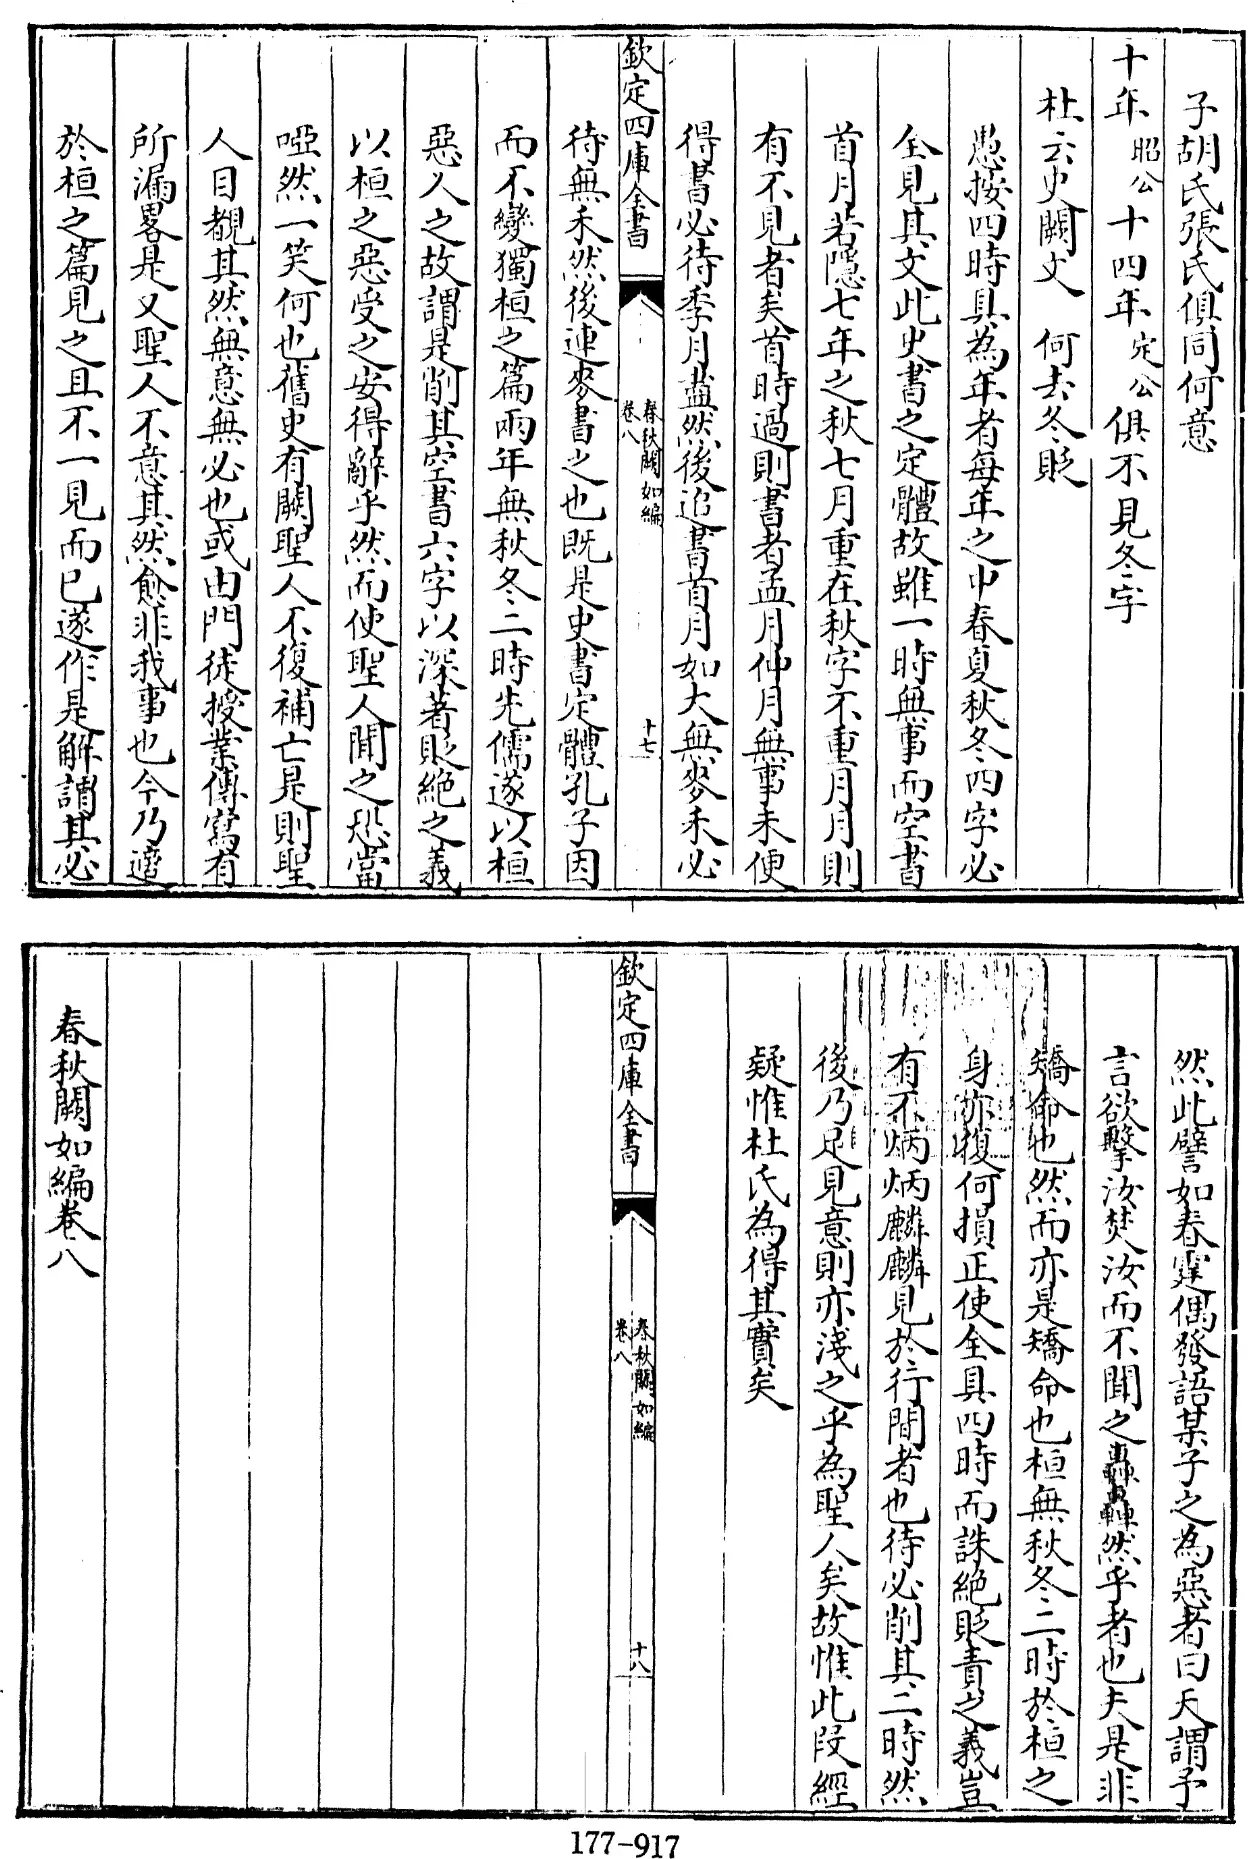 子胡氏張氏俱同何意
十年昭公十四年定公俱不見冬字
杜云史闕文　何去冬貶
愚按四時具為年者每年之中春夏秋冬四字必
全見其文此史書之定體故雖一時無事而空書
首月若隱七年之秋七月重在秋字不重月月則
有不見者矣首時過則書者孟月仲月無事未便
得書必待季月盡然後追書首月如大無麥禾必
欽定四庫全書
春秋闕如編
卷八
十七
待無禾然後連麥書之也既是史書定體孔子因
而不變獨桓之篇兩年無秋冬二時先儒遂以桓
惡人之故謂是削其空書六字以深著貶絶之義
以桓之惡受之安得辭乎然而使聖人聞之恐當
啞然一笑何也舊史有闕聖人不復補亡是則聖
人目覩其然無意無必也或由門徒授業傳寫有
所漏畧是又聖人不意其然愈非我事也今乃適
於桓之篇見之且不一見而已遂作是解謂其必
然此譬如春霆偶發語某子之為惡者曰天謂予
言欲擊汝焚汝而不聞之轟轟然乎者也夫是非
矯命也然而亦是矯命也桓無秋冬二時於桓之
身亦復何損正使全具四時而誅絶貶責之義豈
有不炳炳麟麟見於行間者也待必削其二時然
後乃足見意則亦淺之乎為聖人矣故惟此段經
疑惟杜氏為得其實矣
欽定四庫全書
春秋闕如編
卷八
十八
春秋闕如編卷八
177-917